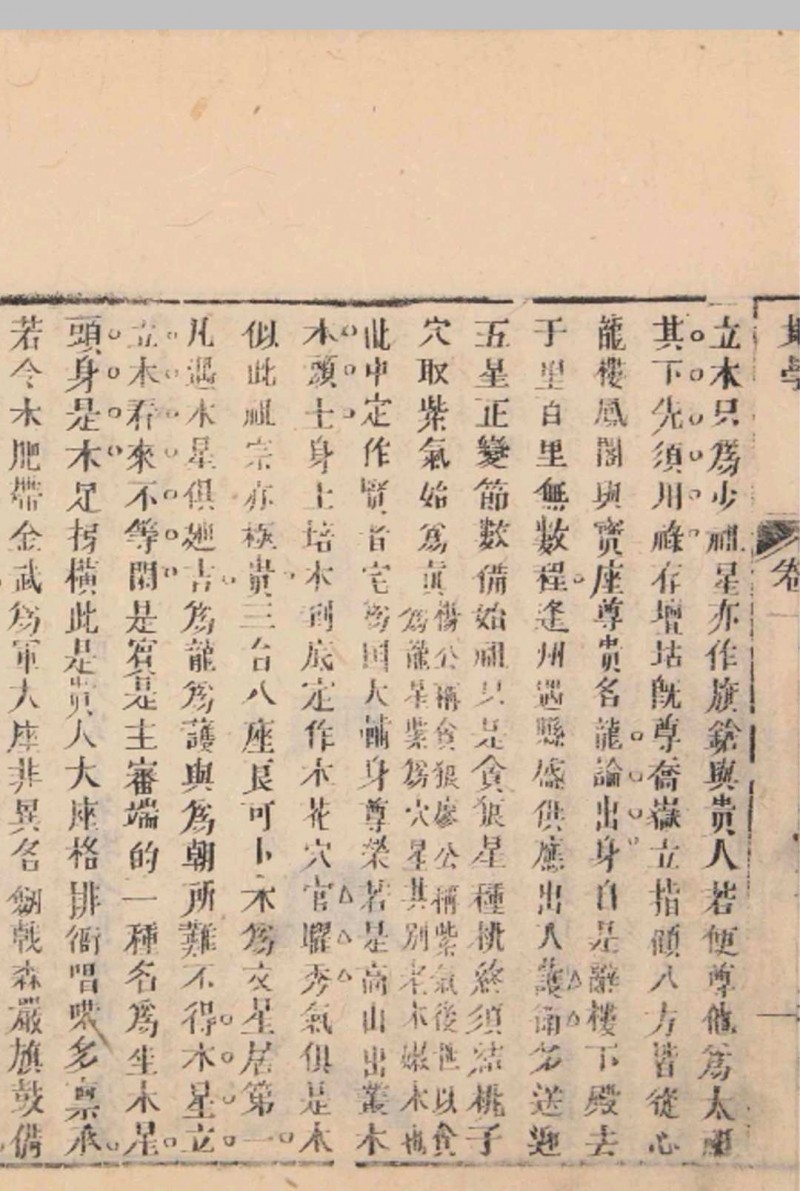 卷一
立木只爲少祖星亦作旗鎗與貴人若使尊他爲太祖
其下先須用祿存壇坫旣尊喬嶽立指顧八方皆從心
龍樓鳳閣與寶座尊貴名龍論出身自是辭樓下殿去
千里百里無數程逢州過縣盛供應出入護衛多送迎
五星正變節數備始祖只是貪狼星種桃終須結桃子
穴取紫氣始爲眞楊公稱貪狼廖公稱紫氣後世以貪
爲龍星紫爲穴星其別老木嫩木也
此中定作賢者宅爲國大輔身尊榮若是高山出叢木
木頭土身土培木到底定作木花穴官曜秀氣俱是木
似此祖宗亦極貴三台八座良可卜木爲文星居第一
凡遇木星俱迪吉爲龍爲護與爲朝所難不得木星立
立木看來不等閒是賓是主審端的一種名爲坐木星
頭身是木足拐橫此是貴人大座格排衙唱喏多稟承
若令木肥帶金武爲軍大座非異名劍戟森嚴旗鼓備